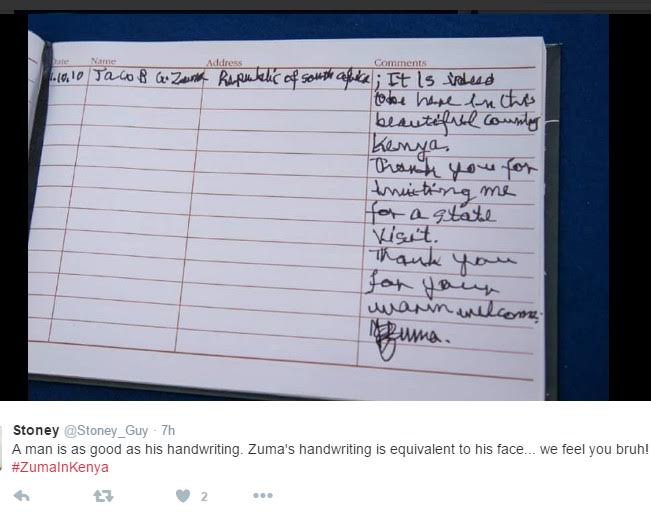 Date Name Address Comments
.10.10 Jacob G. Zuma Republic of south africa ; It Is indeed
to be here in this
beautiful country
Kenya.
Thank you for
inviting me
for a state
visit.
Thank you
for your
warm welcome.
Zuma.
Stoney @Stoney_Guy · 7h
A man is as good as his handwriting. Zuma's handwriting is equivalent to his face... we feel you bruh!
#ZumaInKenya
2